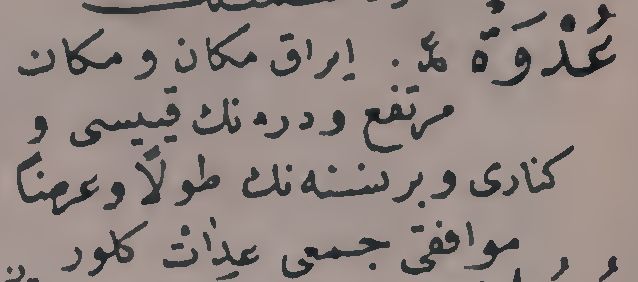 عُدْوَةٌ ايراق مكان و مكان
مرتفع ودره نك قييسى و
كنارى و بر نسنه نك طولاً و عرضاً
موافقى جمعى عِدَاتْ كلور